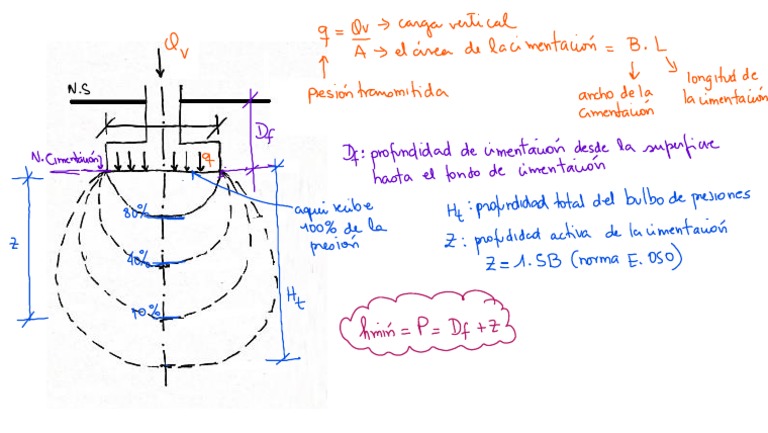 Qv
N.S
N. Cimentación
Df
q
80%
40%
10%
Z
Ht
aquí recibe
100% de la
presión
q = Qv → carga vertical
A → el área de la cimentación = B. L
presión transmitida
ancho de la
cimentación
longitud de
la cimentación
Df: profundidad de cimentación desde la superficie
hasta el fondo de cimentación
Ht: profundidad total del bulbo de presiones
Z: profudidad activa de la cimentación
Z = 1.5B (norma E.050)
hmin = P = Df + Z